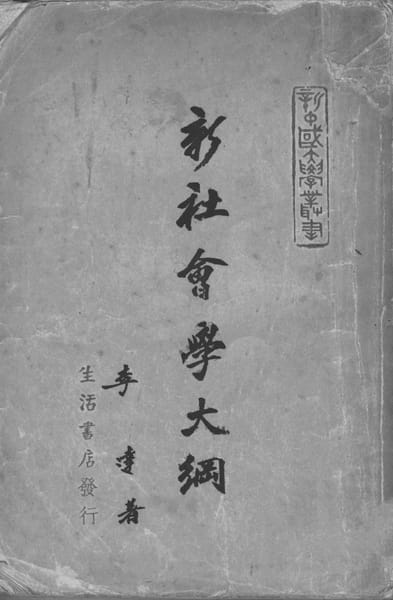 新中國大學叢書
新社會學大綱
李達著
生活書店發行